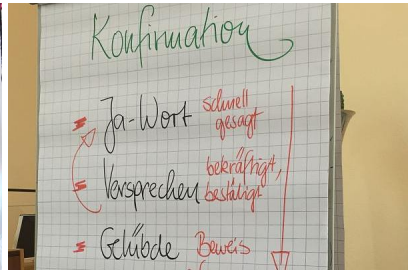 Konfirmation
Ja-Wort schnell gesagt
Versprechen bekräftigt, bestätigt
Gelübde Beweis